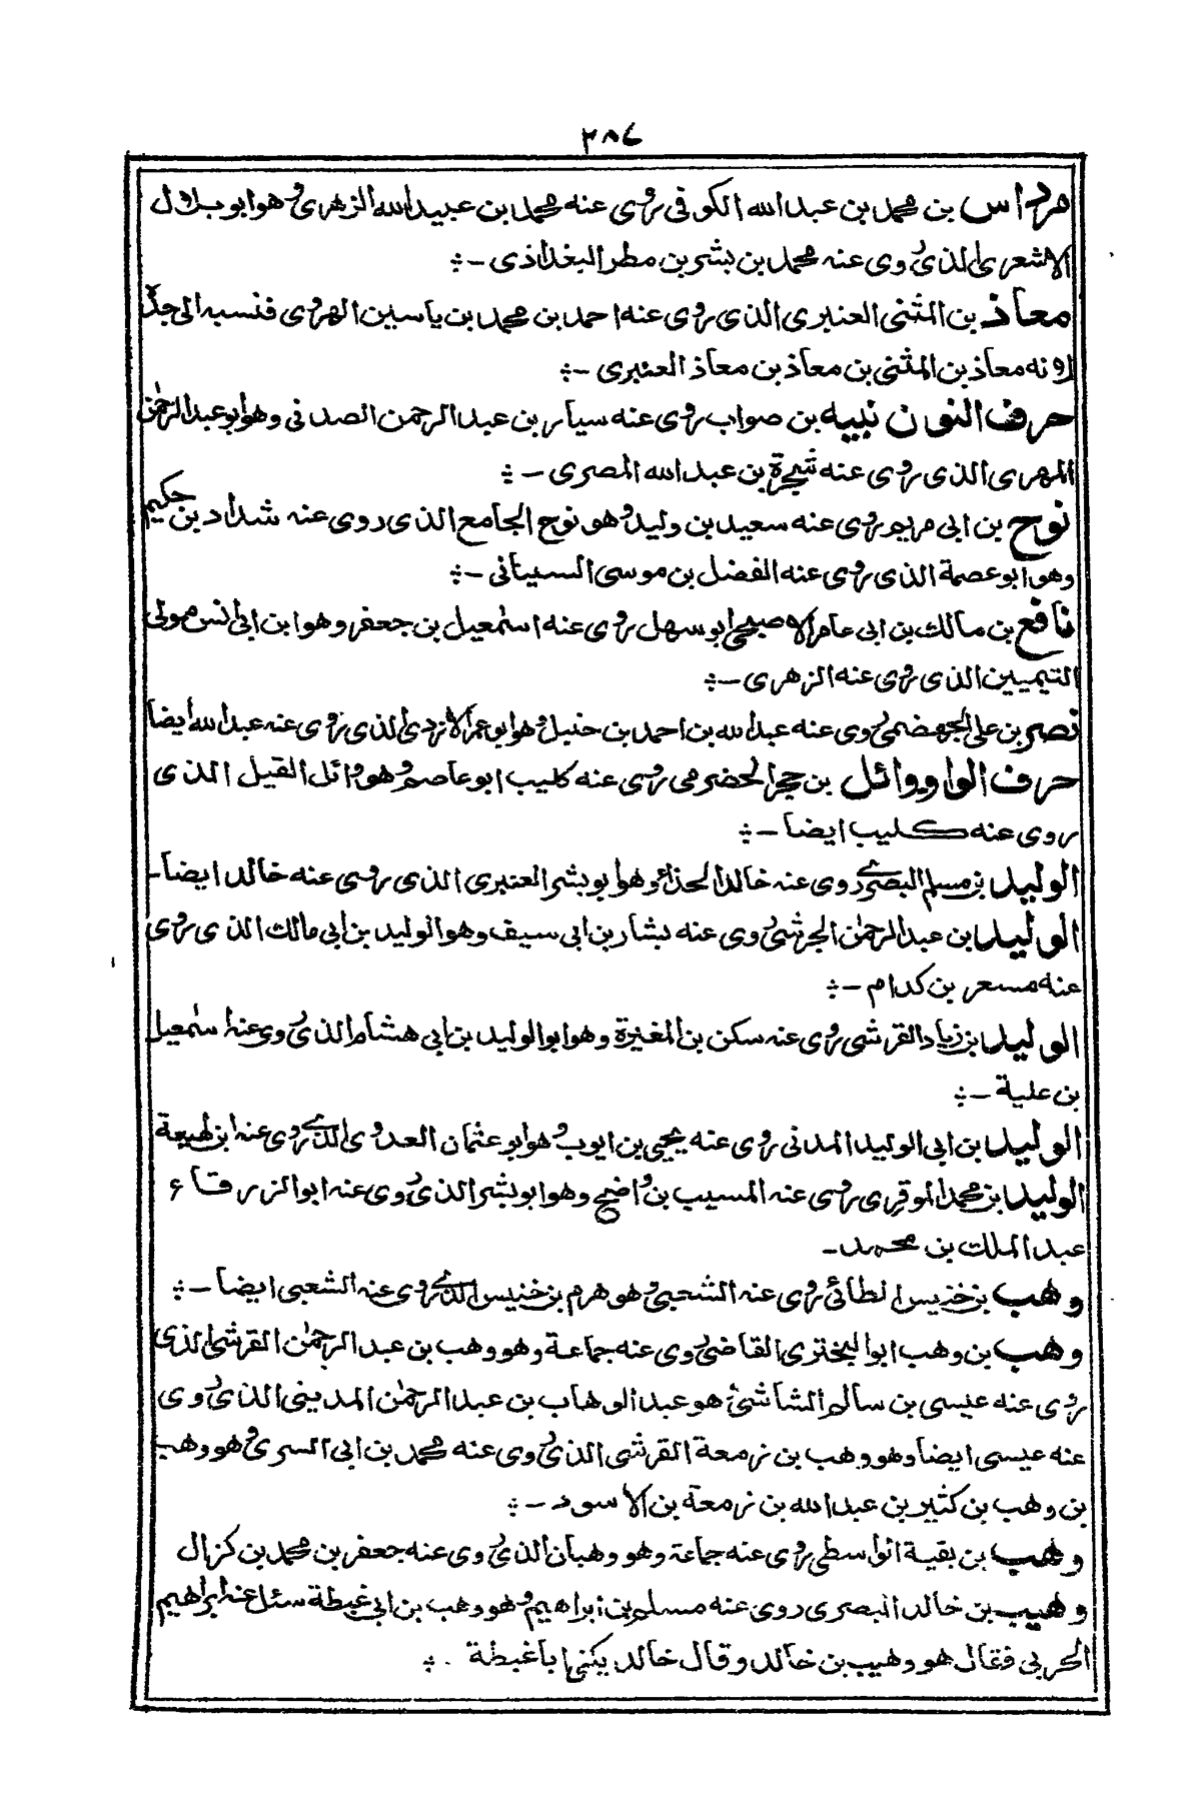 ٣٨٤
مرداس بن محمد بن عبدالله الكوفى روى عنه محمد بن عبيدالله الزهرى وهو ابو بلال
الاشعرى الذى روى عنه محمد بن بشر بن مطر البغداذى -؞
معاذ بن المثنى العنبرى الذى روى عنه احمد بن محمد بن ياسين الهروى فنسبه الى جده
لانه معاذ بن المثنى بن معاذ بن معاذ العنبرى -؞
حرف النون نبيه بن صواب روى عنه سيار بن عبدالرحمن الصدفى وهو ابو عبدالرحمٰن
المهرى الذى روى عنه شجرة بن عبدالله المصرى -؞
نوح بن ابى مريم روى عنه سعيد بن وليد وهو نوح الجامع الذى روى عنه شداد بن حكيم
وهو ابو عصمة الذى روى عنه الفضل بن موسى السينانى -؞
نافع بن مالك بن ابى عامر الاصبحى ابو سهل روى عنه اسمٰعيل بن جعفر وهو ابن ابى انس مولى
التيميين الذى روى عنه الزهرى -؞
نصر بن على الجهضمى روى عنه عبدالله بن احمد بن حنبل وهو ابو عمر الازدى الذى روى عنه عبدالله ايضا
حرف الواو وائل بن حجر الحضرمى روى عنه كليب ابو عاصم وهو وائل القيل الذى
روى عنه كليب ايضا -؞
الوليد بن مسلم البصرى روى عنه خالد الحذاء وهو ابو بشر العنبرى الذى روى عنه خالد ايضا-
الوليد بن عبدالرحمٰن الجرشى روى عنه بشار بن ابى سيف وهو الوليد بن ابى مالك الذى روى
عنه مسعر بن كدام -؞
الوليد بن زياد القرشى روى عنه سكن بن المغيرة وهو ابو الوليد بن ابى هشام الذى روى عنه اسمٰعيل
بن علية -؞
الوليد بن ابى الوليد المدنى روى عنه يحيى بن ايوب وهو ابو عثمان العدوى الذى روى عنه ابن لهيعة
الوليد بن محمد الموقرى روى عنه المسيب بن واضح وهو ابو بشر الذى روى عنه ابو الزرقاء
عبد الملك بن محمد-
وهب بن خنبس الطائى روى عنه الشعبى وهو هرم بن خنبس الذى روى عنه الشعبى ايضا -؞
وهب بن وهب ابو البخترى القاضى روى عنه جماعة وهو وهب بن عبد الرحمٰن القرشى الذى
روى عنه عيسى بن سالم الشاشى هو عبد الوهاب بن عبد الرحمٰن المدينى الذى روى
عنه عيسى ايضا وهو وهب بن زمعة القرشى الذى روى عنه محمد بن ابى السرى وهو وهب
بن وهب بن كثير بن عبدالله بن زمعة بن الاسود -؞
وهب بن بقية الواسطى روى عنه جماعة وهو وهبان الذى روى عنه جعفر بن محمد بن كزال
وهيب بن خالد البصرى روى عنه مسلم بن ابراهيم وهو وهب بن ابى غبطة سئل عنه ابراهيم
الحربى فقال هو وهيب بن خالد وقال خالد يكنى اباغبطة ؞